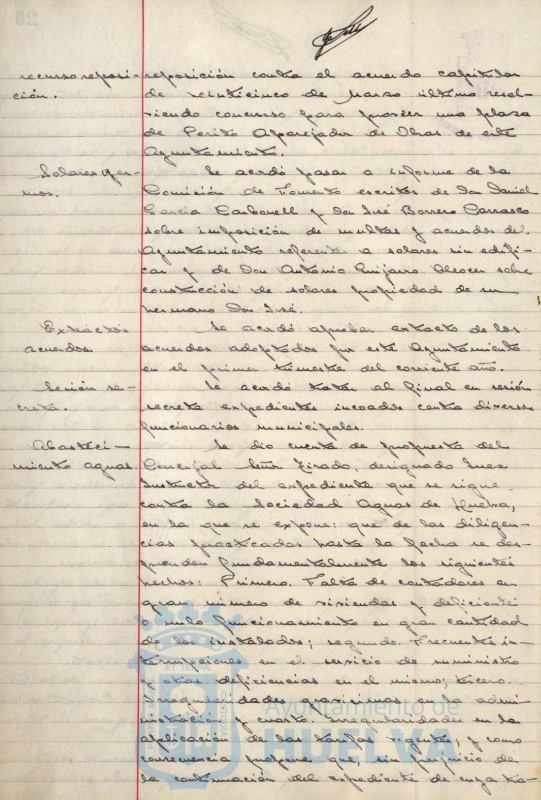 recurso reposi- reposición contra el acuerdo capitular
ción. de veinticinco de Marzo último resol-
viendo concurso para proveer una plaza
de Perito Aparejador de Obras de este
Ayuntamiento.
Solares yer- Se acordó pasar a informe de la
mos. Comisión de Fomento escritos de Don Daniel
García Carbonell y Don José Borrero Carrasco
sobre imposición de multas y acuerdos del
Ayuntamiento referente a solares sin edifi-
car y de Don Antonio Guijarro Alcocer sobre
construcción de solares propiedad de su
hermano Don José.
Extracto Se acordó aprobar extracto de los
acuerdos. acuerdos adoptados por este Ayuntamiento
en el primer trimestre del corriente año.
Sesión se- Se acordó tratar al final en sesión
creta. secreta expedientes incoados contra diversos
funcionarios municipales.
Abasteci- Se dio cuenta de propuesta del
miento aguas. Concejal Señor Tirado, designado Juez
Instructor del expediente que se sigue
contra la Sociedad Aguas de Huelva,
en la que se expone: que de las diligen-
cias practicadas hasta la fecha se des-
prenden fundamentalmente los siguientes
hechos: Primero. Falta de contadores en
gran número de viviendas y deficiente
o nulo funcionamiento en gran cantidad
de los instalados; segundo. Frecuentes in-
terrupciones en el servicio de suministro
y otras deficiencias en el mismo; tercero.
Irregularidades gravísimas en la admi-
nistración y cuarto. Irregularidades en la
aplicación de las tarifas vigentes, y como
consecuencia propone que, sin perjuicio de
la continuación del expediente de cuya tra-
Ayuntamiento de
HUELVA